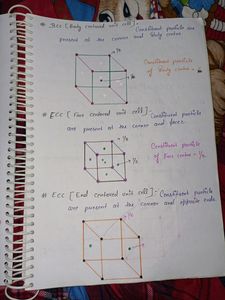 * BCC [Body centered unit cell] :- Constituent particle
are present at the corner and body centre.
1/8
Constituent particle
of body centre =
# FCC [Face centered unit cell] :- Constituent particle
are present at the corner and faces.
1/8
Constituent particle
of face centre = 1/2
# ECC [End centered unit cell] :- Constituent particle
are present at the corner and opposite ends.
1/8